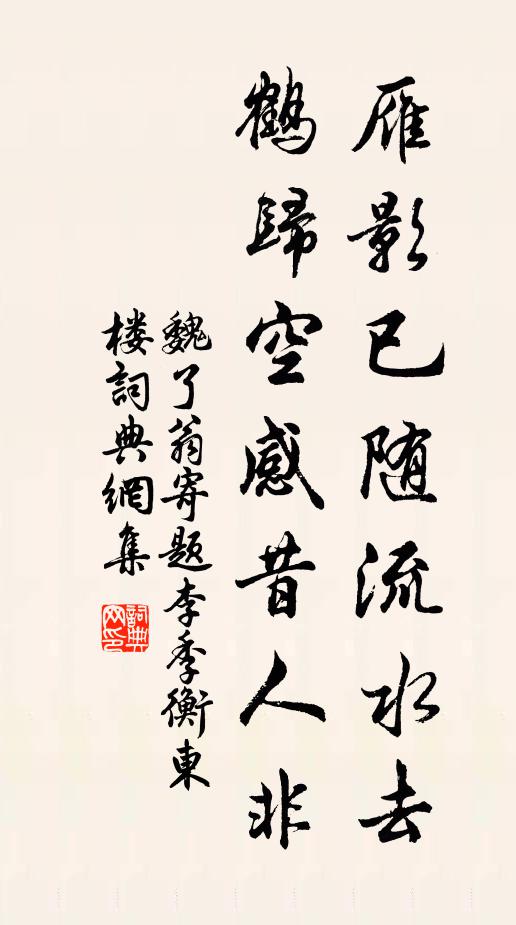 雁影已随流水去
鶴歸空感昔人非
魏了翁寄题李季衡東
楼詞典網集
詞典网印